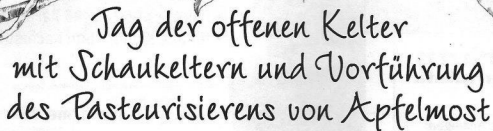 Tag der offenen Kelter
mit Schaukeltern und Vorführung
des Pasteurisierens von Apfelmost